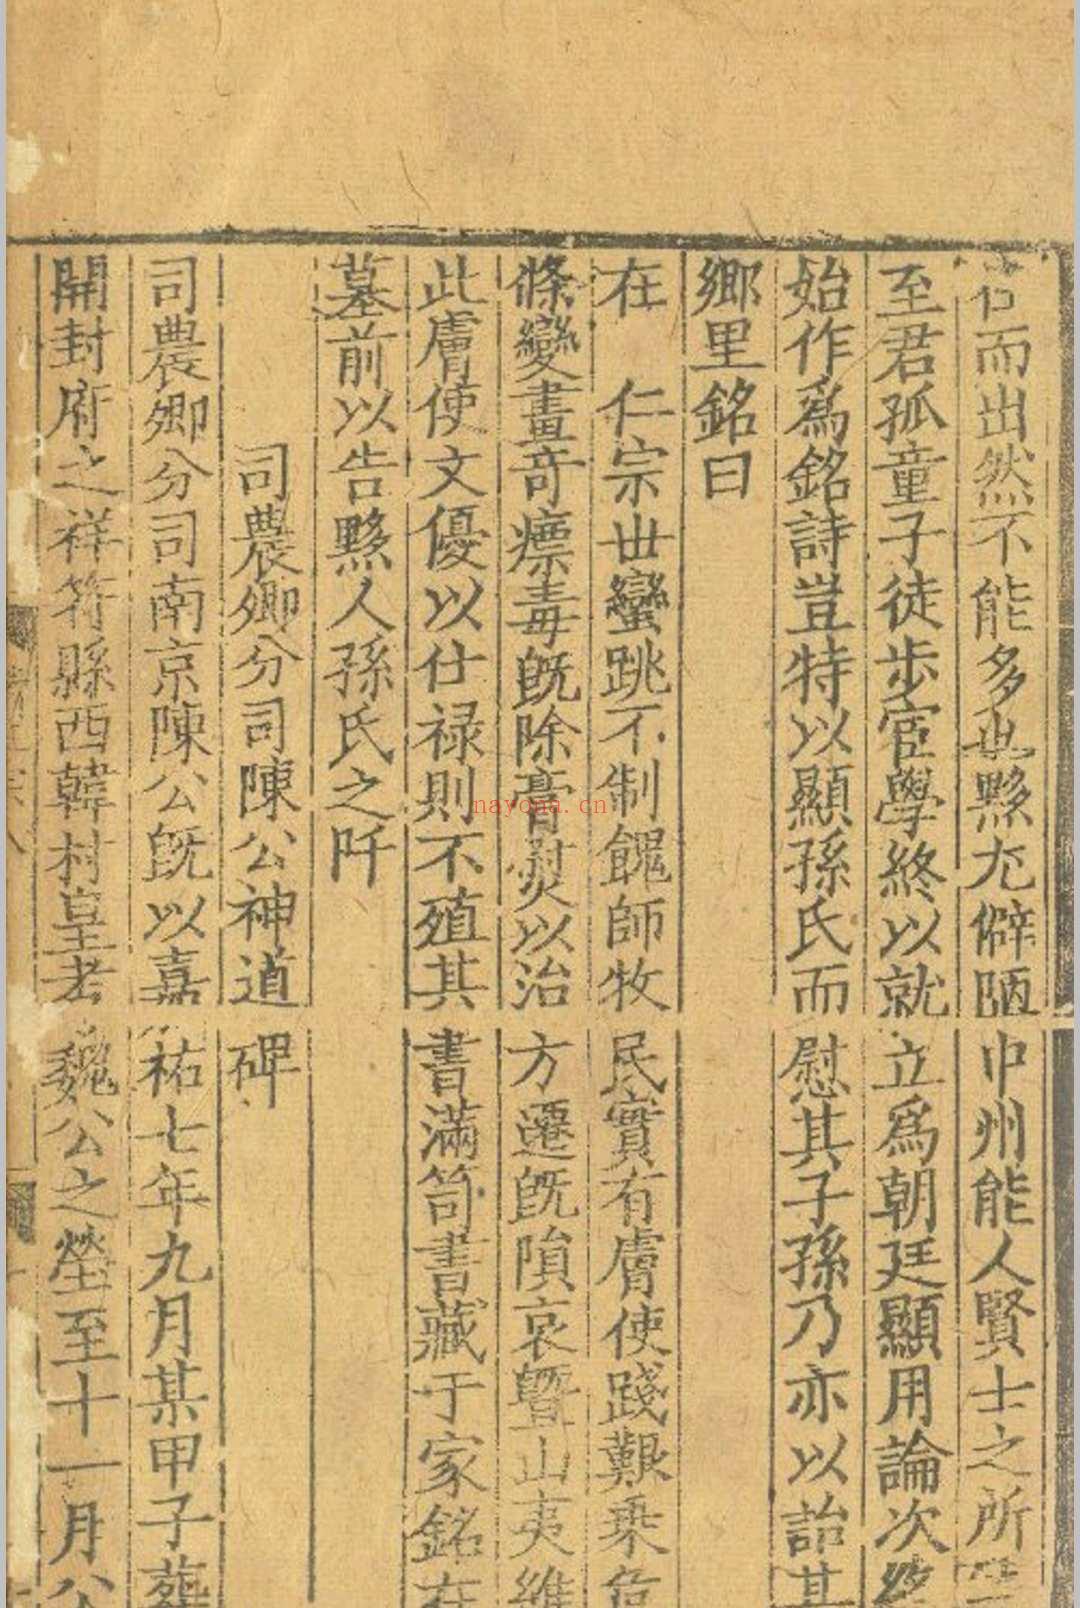 名而出然不能多也黟尤僻陋中州能人賢士之所
至君孤童子徒步宦學終以就立為朝廷顯用論次終
始作為銘詩豈特以顯孫氏而慰其子孫乃亦以詒其
鄉里銘曰
在 仁宗世蠻跳不制餽師牧民實有膚使踐艱乘危
條變畫奇瘭毒旣除膏熨以治方遷旣隕哀曁山夷維
此膚使文優以仕祿則不殖其書滿笥書藏于家銘在
墓前以告黟人孫氏之阡
司農卿分司陳公神道碑
司農卿分司南京陳公旣以嘉祐七年九月某甲子葬
開封府之祥符縣西韓村皇考魏公之塋至十一月公
nayona.cn